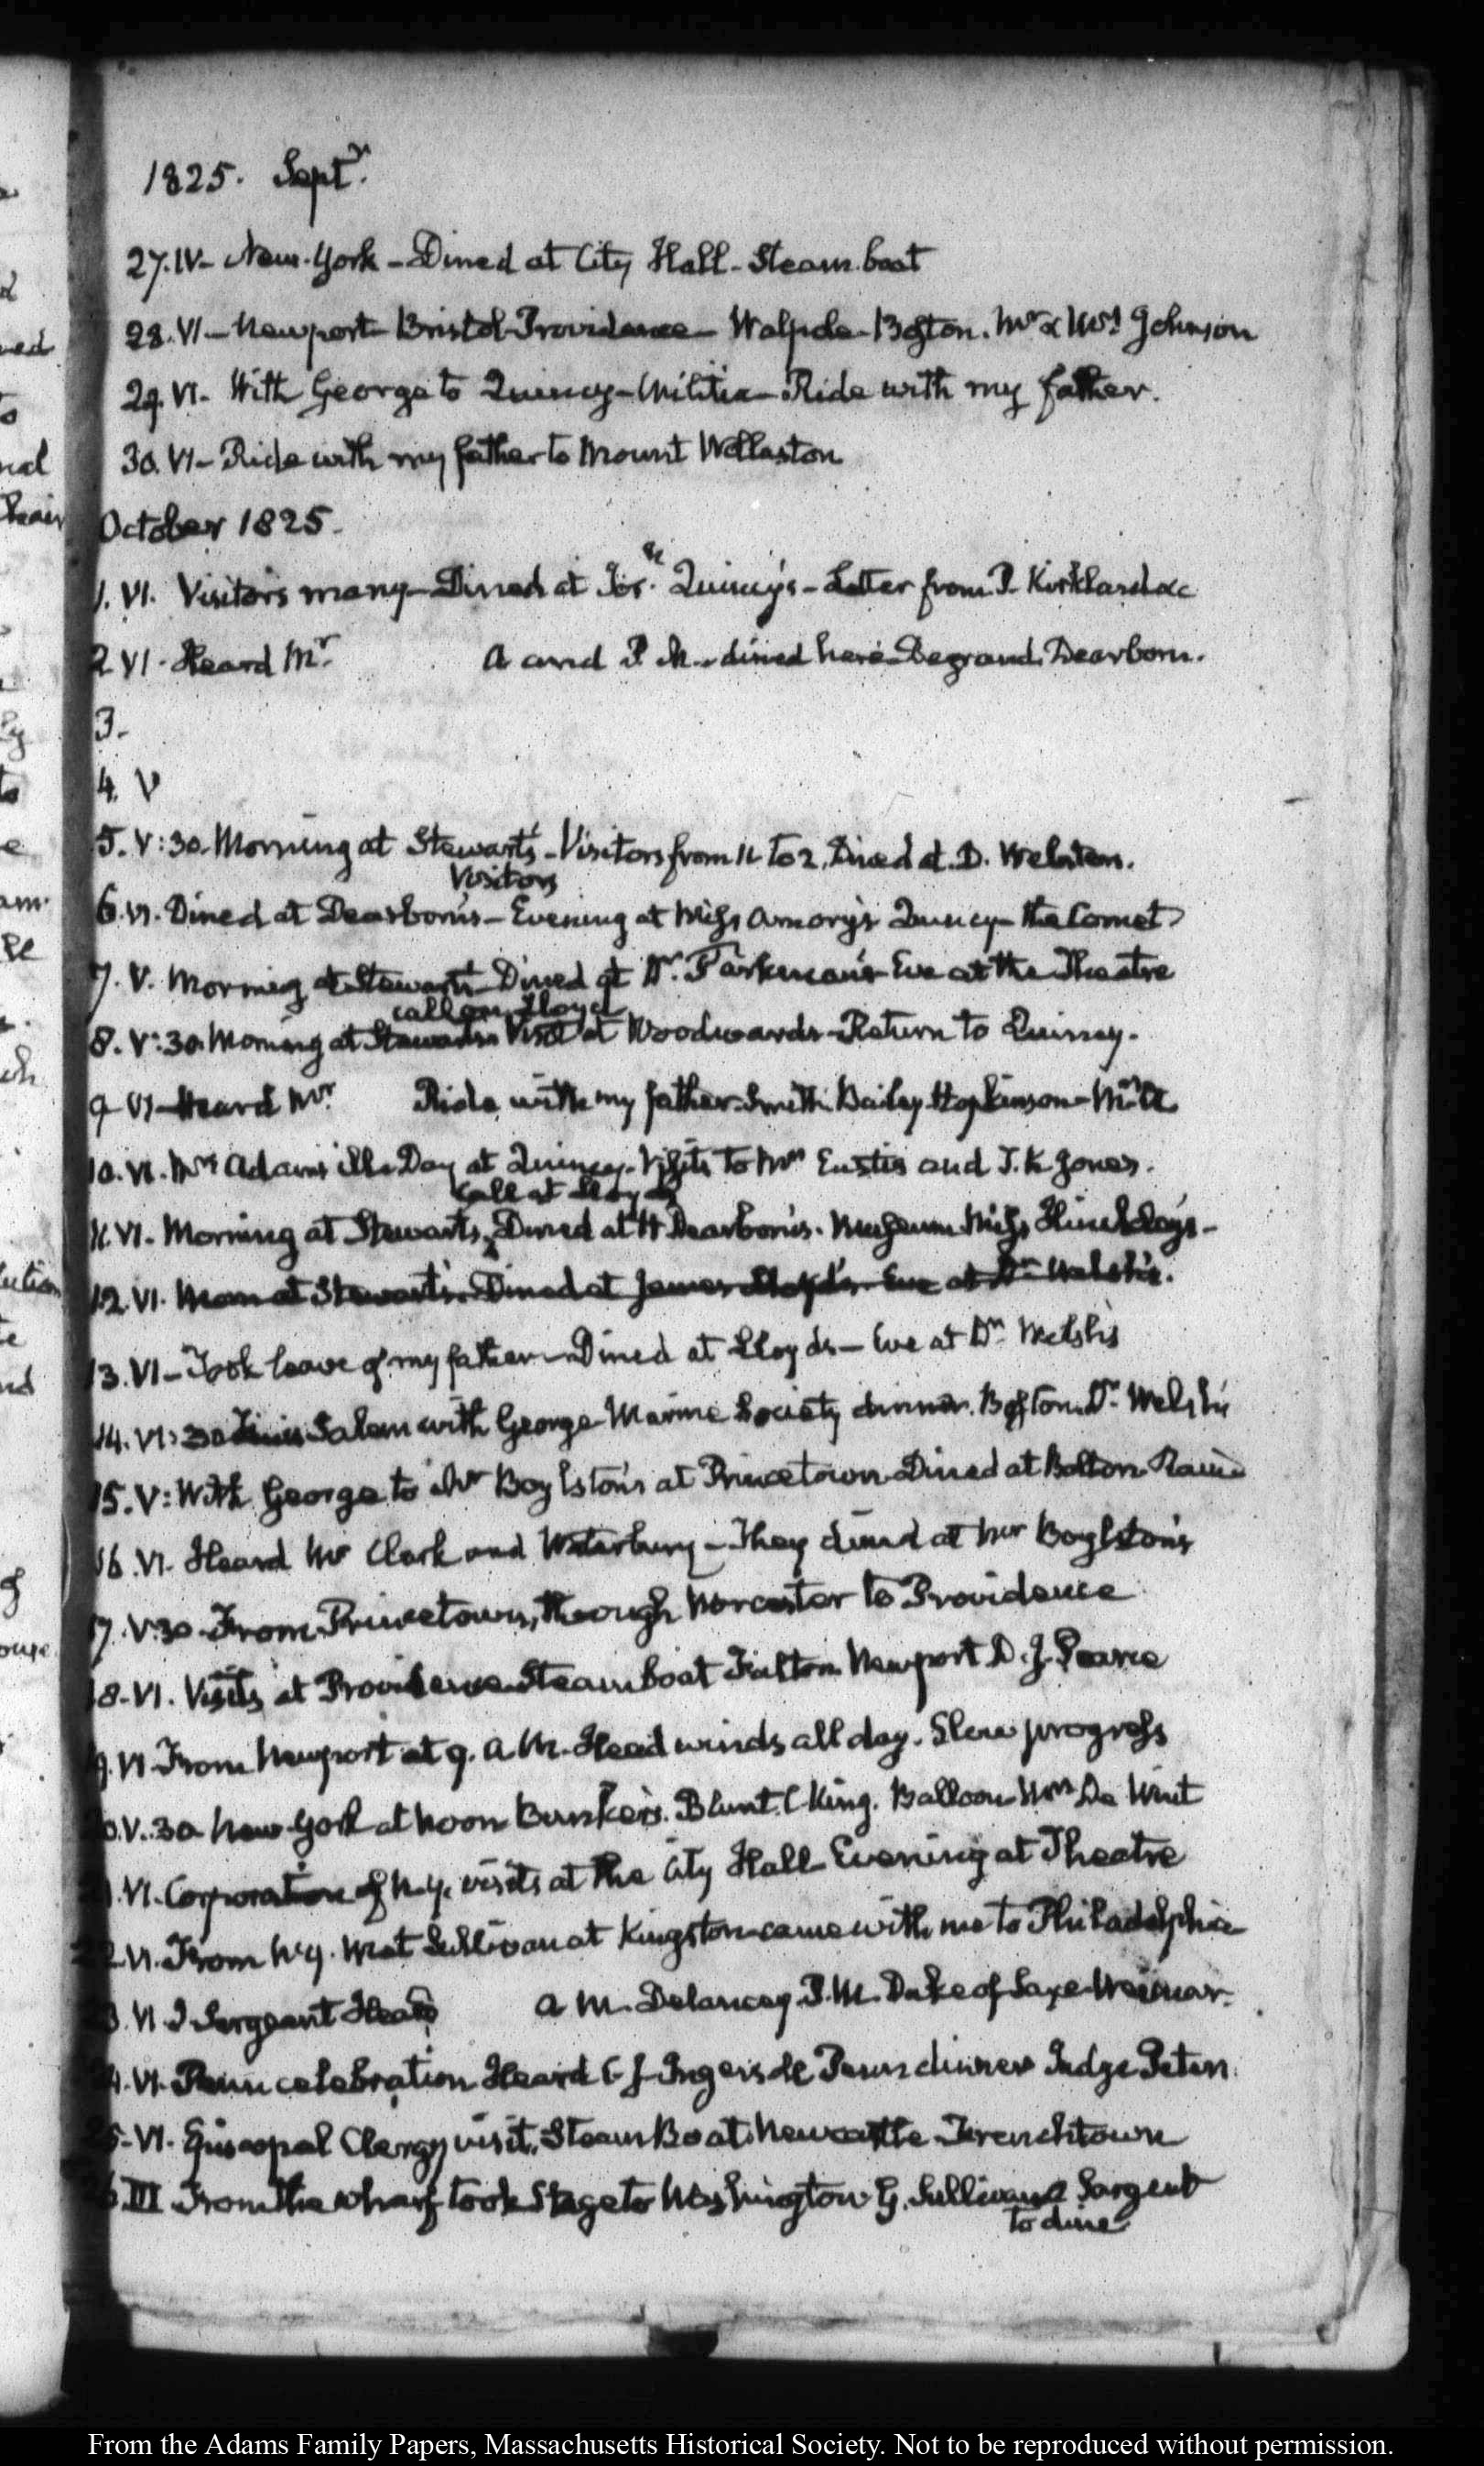 1825. Septr.
27. IV- New-York - Dined at City Hall - Steam-boat
28. VI - Newport - Bristol - Providence - Walpole - Boston. Mr & Mrs Johnson
29. VI - With George to Quincy - Militia - Ride with my father.
30. VI - Ride with my father to Mount Wollaston
October 1825.
1. VI. Visitors many - Dined at Quincy's - Letter from P. Kirkland &c
2 VI. Heard Mr. A and P M. dined here Degrand, Dearborn.
3.
4. V
5. V:30. Morning at Stewart's - Visitors from 11 to 2. Dined at D. Webster.
Visitors
6. VI. Dined at Dearborn's - Evening at Miss Amory's Quincy - The Comet
7. V. Morning at Stewart's Dined at Dr. Parkman's Eve at the Theatre
call on Lloyd
8. V:30. Morning at Stewart's Visit at Woodwards - Return to Quincy.
9 VI - Heard Mr. Ride with my father. Smith Bailey Hopkinson
10. VI. Mrs Adams ill. Day at Quincy. Visits to Mrs Eustis and T. K. Jones.
Call at Lloyds
11. VI. Morning at Stewarts, Dined at H Dearborn's. Museum Miss Hinckley's -
12. VI. Morn at Stewart's. Dined at James Lloyd's. Eve at Dr. Welsh's.
13. VI - Took leave of my father - Dined at Lloyds - Eve at Dr. Welsh's
14. VI:30 Salem with George - Marine Society dinner. Boston. Dr. Welsh's
15. V: With George to Mr Boylston's at Princetown Dined at Bolton
16. VI. Heard Mr Clark and Waterbury - They dined at Mr Boylston's
17. V:30. From Princetown, through Worcester to Providence
18. VI. Visits at Providence Steamboat Fulton. Newport D. J. Pearce
9. VI. From Newport at 9. A.M. Head winds all day. Slow progress
0. V.:30 New-York at Noon Bunker's. Blunt. C King. Balloon Mrs De Wint
VI. Corporation of N.Y. visits at the City Hall Evening at Theatre
2 VI. From N.Y. Met Sullivan at Kingston came with me to Philadelphia
3. VI J Sergeant Heard A M. Delancey. P.M. Duke of Saxe-Weimar.
4. VI. Penn celebration Heard C J Ingersoll Penn dinner Judge Peters.
5. VI. Episcopal Clergy visit. Steam Boat. Newcastle Frenchtown
6. III From the wharf took Stage to Washington G. Sullivan & Sargent
to dine
From the Adams Family Papers, Massachusetts Historical Society. Not to be reproduced without permission.